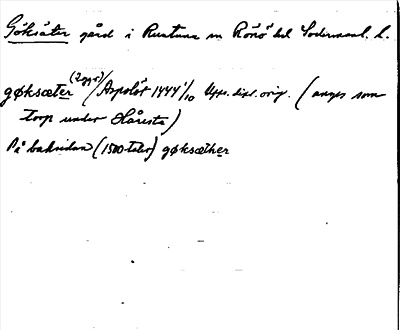 Göksäter gård i Runtuna sn Rönö hd Södermanl. l.
(2 ggr)
gøksæter / Aspolöt 1444 1/10 Upps. dipl. orig. (anges som
torp under Håresta)
På baksidan (1500-talet) gøksæther